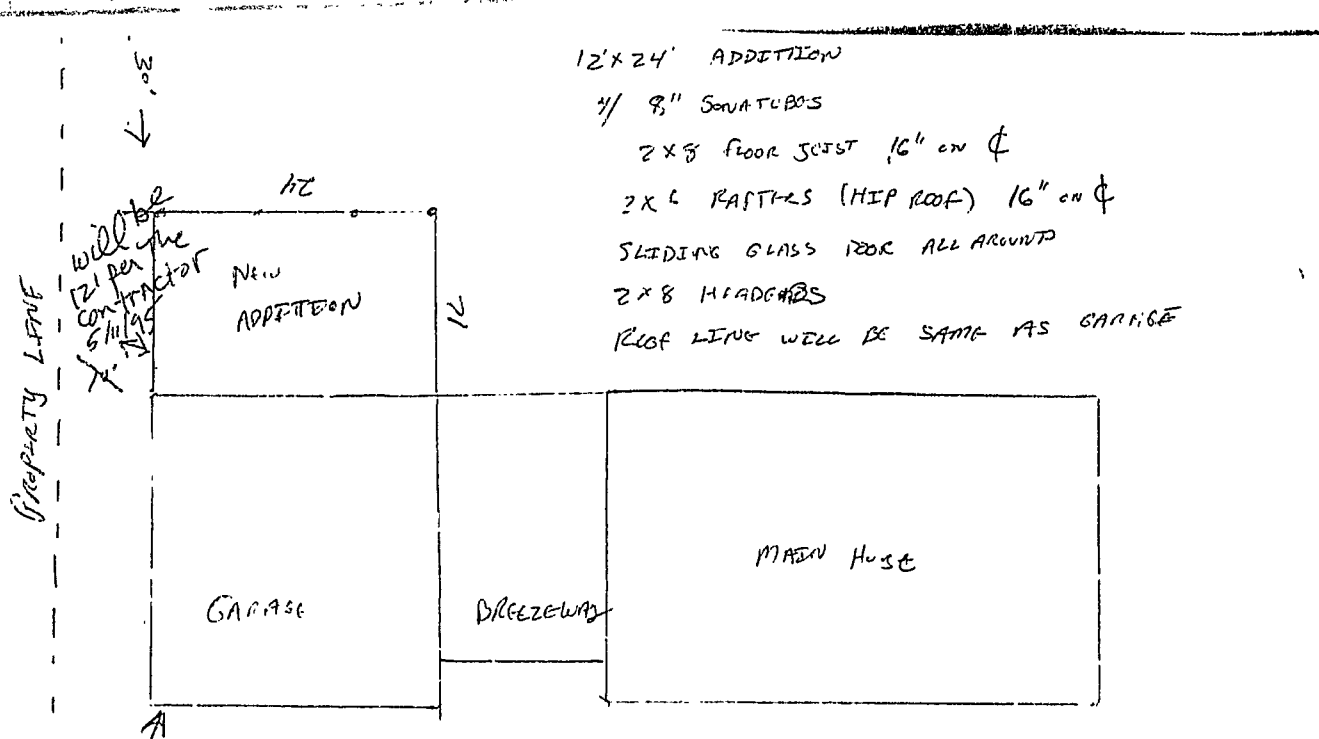 12'X24' ADDITION
W/ 8" SONATUBOS
2X8 FLOOR JOIST 16" ON ℄
2X6 RAFTERS (HIP ROOF) 16" ON ℄
SLIDING GLASS DOOR ALL AROUND
2X8 HEADERS
ROOF LINE WILL BE SAME AS GARAGE
30'
24
will be
12' per the
contractor
5/11/95
NEW
ADDITION
12
PROPERTY LINE
GARAGE
BREEZEWAY
MAIN HOUSE